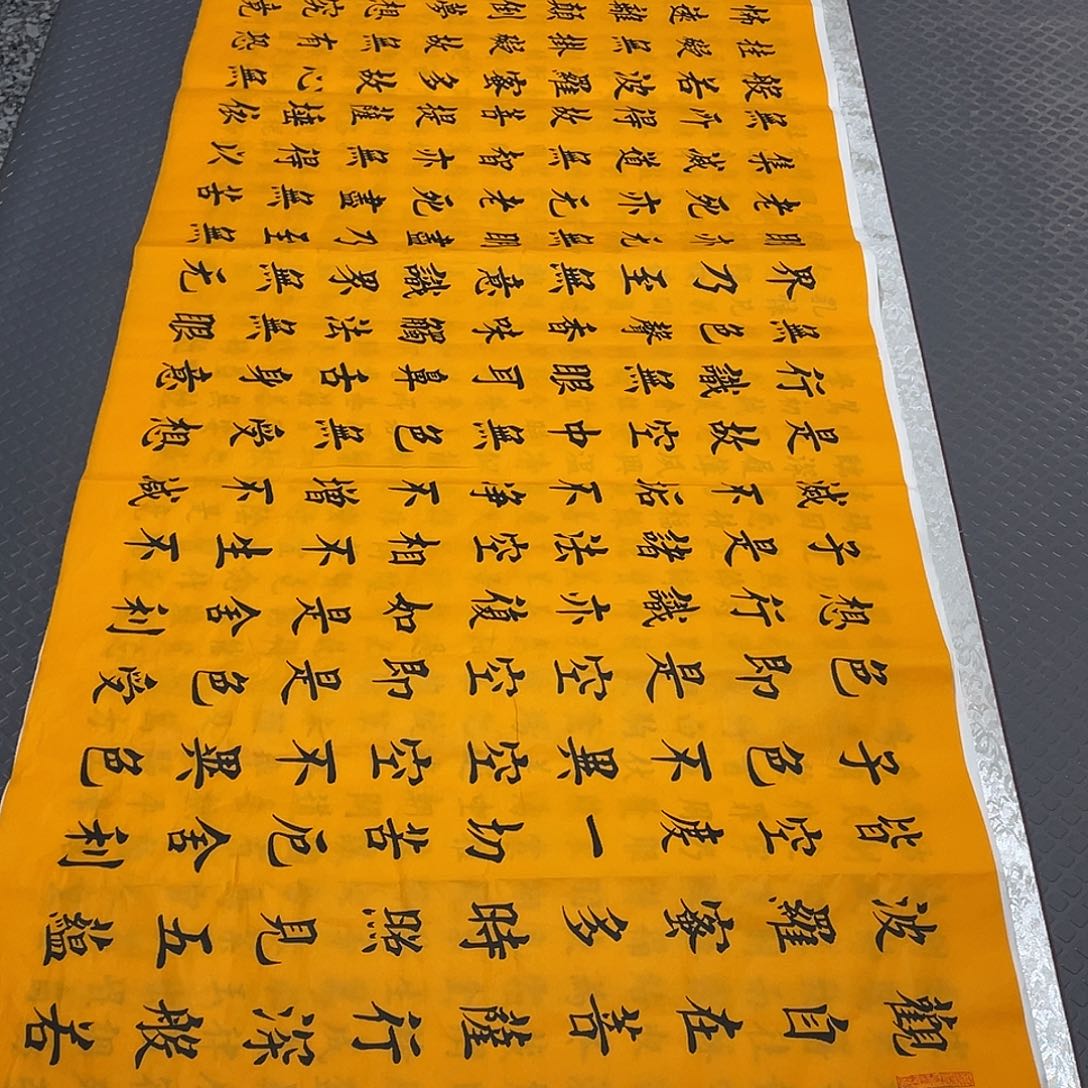 觀自在菩薩行深般若
波羅蜜多時照見五蘊
皆空度一切苦厄舍利
子色不異空空不異色
色即是空空即是色受
想行識亦復如是舍利
子是諸法空相不生不
滅不垢不净不增不減
是故空中無色無受想
行識無眼耳鼻舌身意
無色聲香味觸法無眼
界乃至無意識界無无
明亦无無明盡乃至無
老死亦无老死盡無苦
集滅道無智亦無得以
無所得故菩提薩埵依
般若波羅蜜多故心無
挂礙無掛礙故無有恐
怖遠離顛倒夢想究竟